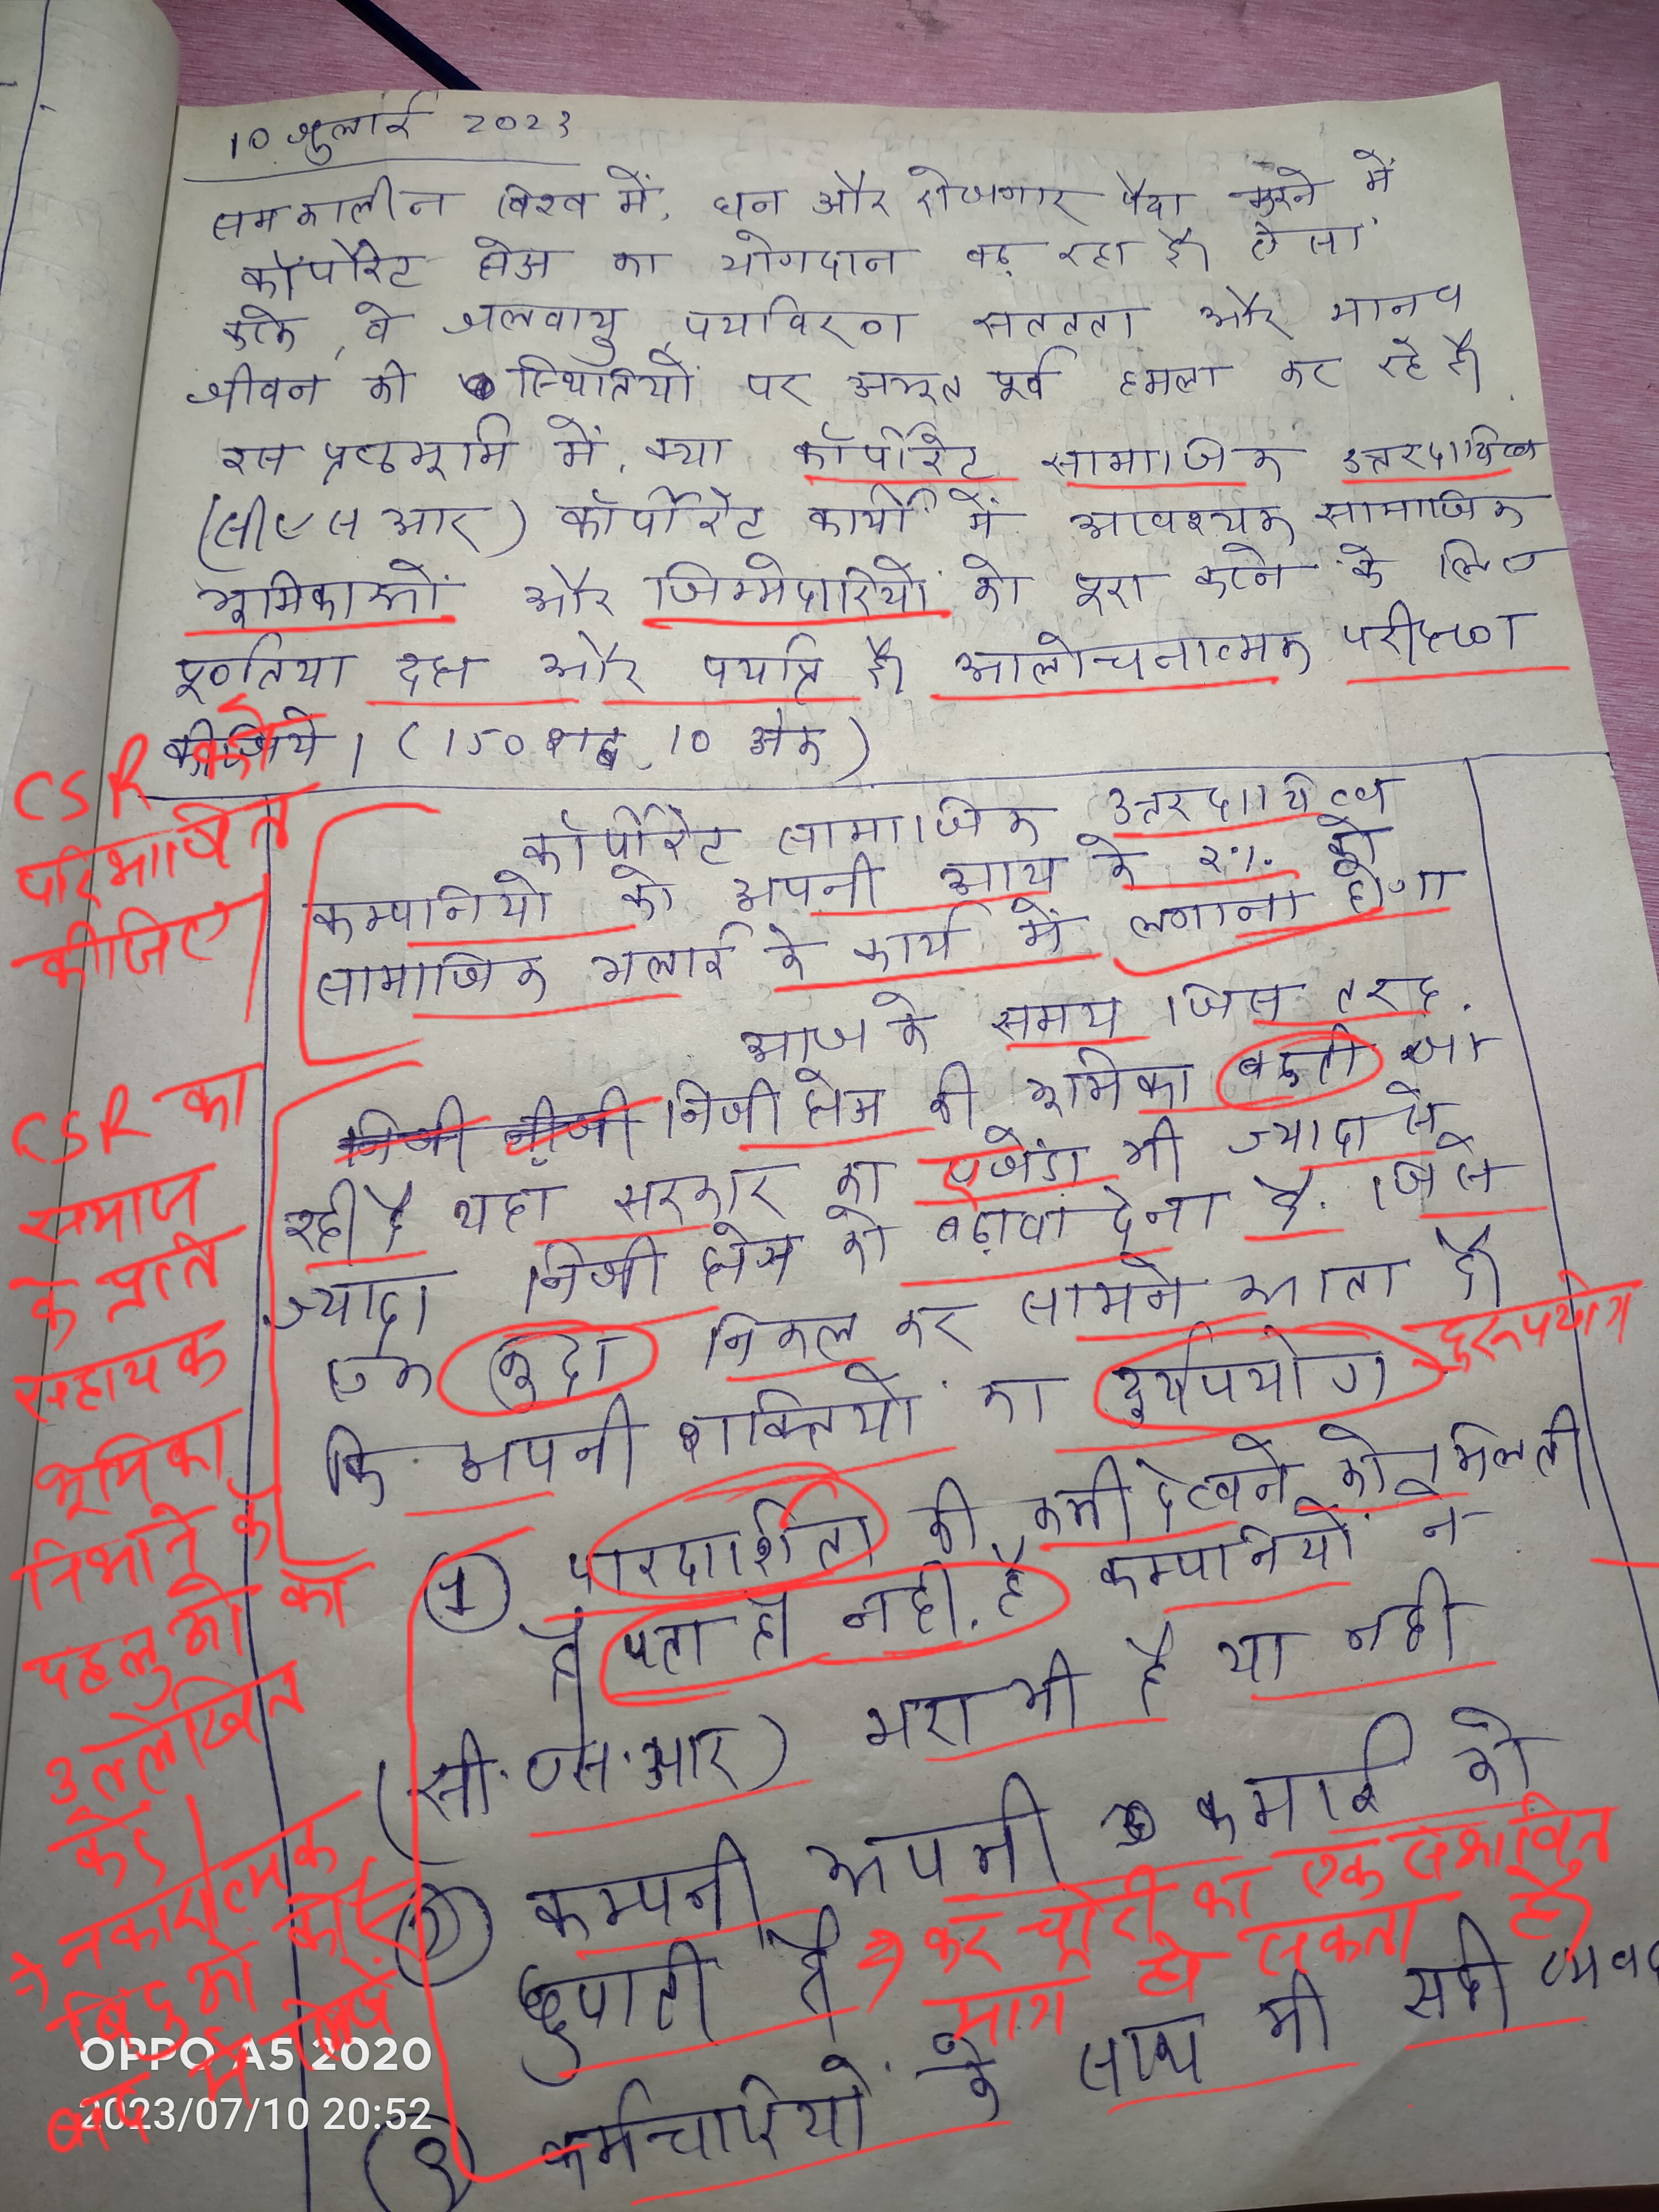 10 जुलाई 2023
समकालीन विश्व में, धन और रोजगार पैदा करने में
कॉर्पोरेट क्षेत्र का योगदान बढ़ रहा है। ऐसा
करके, वे जलवायु, पर्यावरण सततता और मानव
जीवन की स्थितियों पर अभूतपूर्व हमला कर रहे है।
इस पृष्ठभूमि में, क्या कॉर्पोरेट सामाजिक उत्तरदायित्व
(सीएसआर) कॉर्पोरेट कार्यों में आवश्यक सामाजिक
भूमिकाओं और जिम्मेदारियों को पूरा करने के लिए
पूर्णतया दक्ष और पर्याप्त है। आलोचनात्मक परीक्षण
कीजिये। (150 शब्द, 10 अंक)
CSR को
परिभाषित
कीजिए।
कॉर्पोरेट सामाजिक उत्तरदायित्व
कम्पनियो को अपनी आय के 2% को
सामाजिक भलाई के कार्य में लगाना होगा
CSR का
समाज
के प्रति
सहायक
भूमिका
निभाने के
पहलुओ को
उल्लेखित
करे।
आज के समय जिस तरह
निजी नीजी निजी क्षेत्र की भूमिका बढती जा
रही है यहाँ सरकार का एजेंडा भी ज्यादा से
ज्यादा निजी क्षेत्र को बढ़ावा देना है. जिसे
एक मुद्दा निकल कर सामने आता है।
कि अपनी शक्तियो का दुर्यपयोग
दुरूपयोग
① पारदार्शिता की कमी देखने को मिलती
है पता ही नही. है कम्पानियो ने
(सी.एस.आर) भरा भी है या नही
② कम्पनी अपनी कमाई को
छुपाती है
→ कर चोरी का एक संभावित
मार्ग हो सकता है।
→ नकारात्मक
बिंदुओ को
बाद में लिखें
(3) कर्मचारियो के साथ भी सही व्यवह
OPPO A5 2020
2023/07/10 20:52